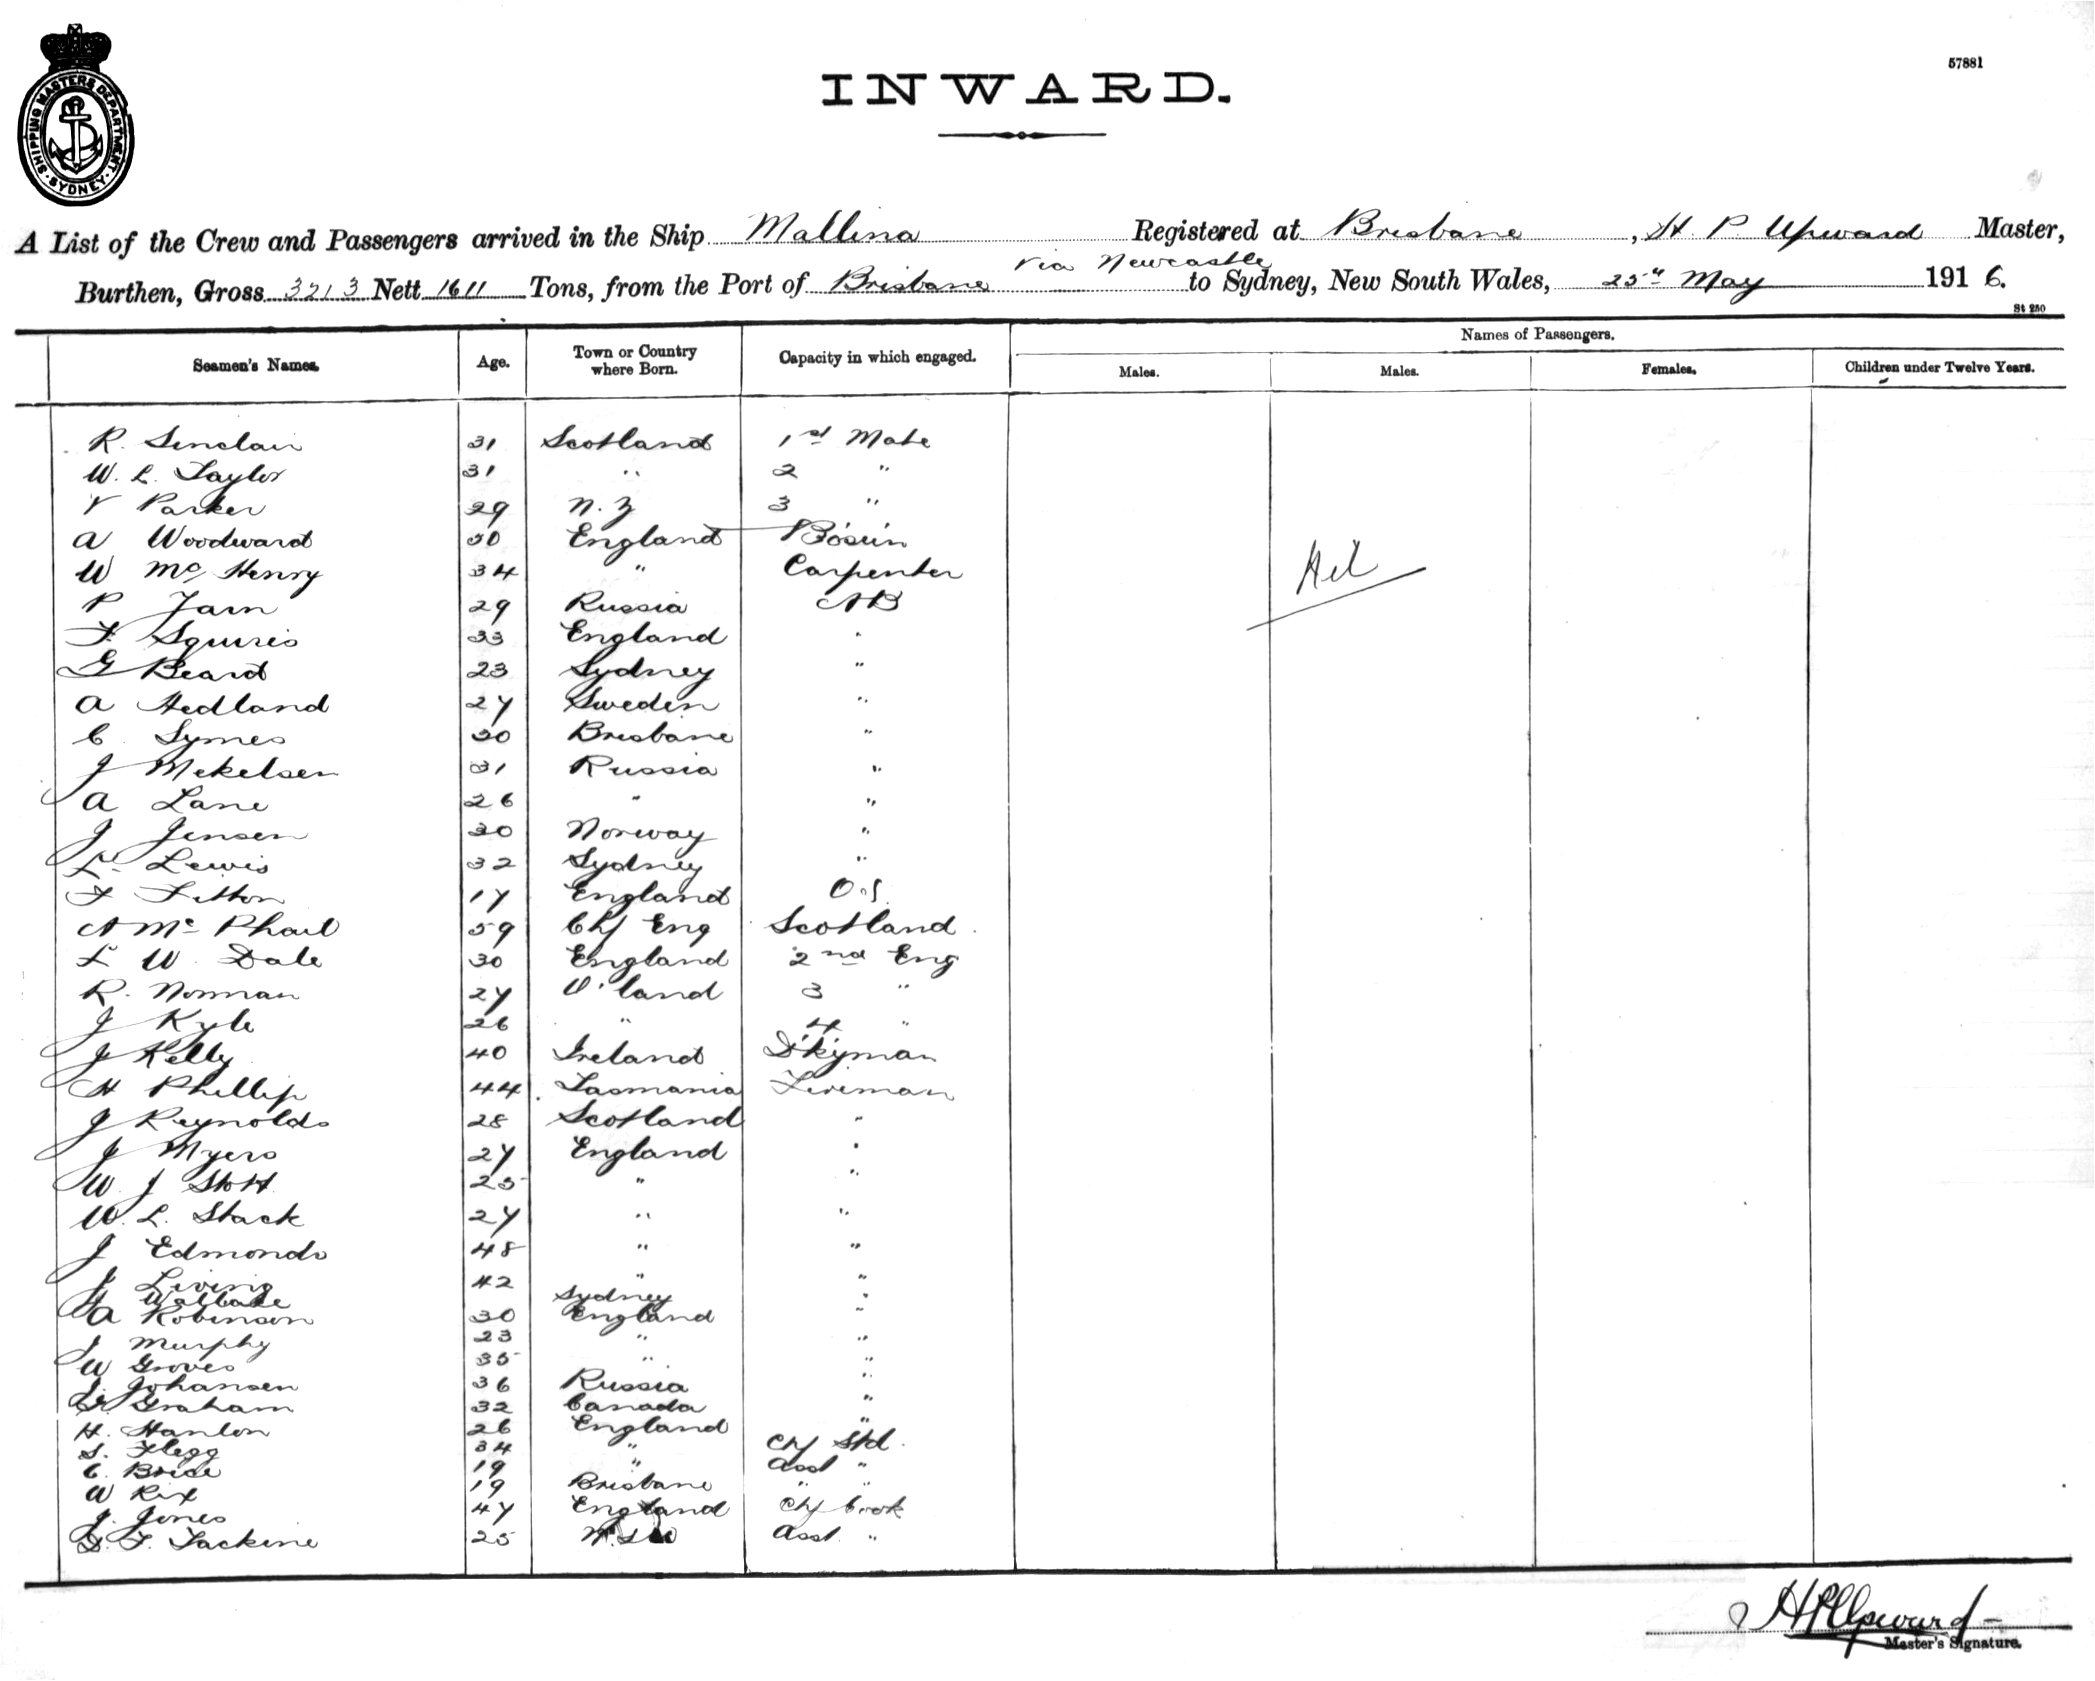 57881
SHIPPING MASTERS DEPARTMENT
SYDNEY
INWARD.
A List of the Crew and Passengers arrived in the Ship Mallina Registered at Brisbane, H. P. Upward Master,
via Newcastle
Burthen, Gross 3213 Nett 1611 Tons, from the Port of Brisbane to Sydney, New South Wales, 25th May 1916.
St 250
Seamen's Names. Age. Town or Country where Born. Capacity in which engaged. Names of Passengers.
Males. Males. Females. Children under Twelve Years.
R. Sinclair 31 Scotland 1st Mate
W. L. Taylor 31 " 2 "
Parker 29 N. Z 3 "
A Woodward 50 England Bosun
W Mc Henry 34 " Carpenter
Nil
P Jam 29 Russia AB
F Squires 33 England "
G Beard 23 Sydney "
A Hedland 27 Sweden "
C Symes 30 Brisbane "
J Mekelsen 31 Russia "
A Lane 26 " "
J Jensen 30 Norway "
L Lewis 32 Sydney "
F Fitton 17 England O.S.
A Mc Phail 59 Chf Eng Scotland
L W Dale 30 England 2nd Eng
R. Norman 27 Q'land 3 "
J Kyle 26 " 4 "
J Kelly 40 Ireland D'kyman
H Phillip 44 Tasmania Fireman
J Reynolds 28 Scotland "
J Myers 27 England "
W. J Stott 25 " "
W. L. Stack 27 " "
J Edmonds 48 " "
J Living 42 " "
Wallace Sydney "
A Robinson 30 England "
J Murphy 23 " "
W Groves 35 " "
J. Johansen 36 Russia "
G. Graham 32 Canada "
H. Hanlon 26 England "
S. Flegg 34 " Chf Std.
C. Brice 19 " Asst "
W Rix 19 Brisbane " "
J. Jones 47 England Chf Cook
F. Jackine 25 N.S.W Asst. "
H P Upward
Master's Signature.